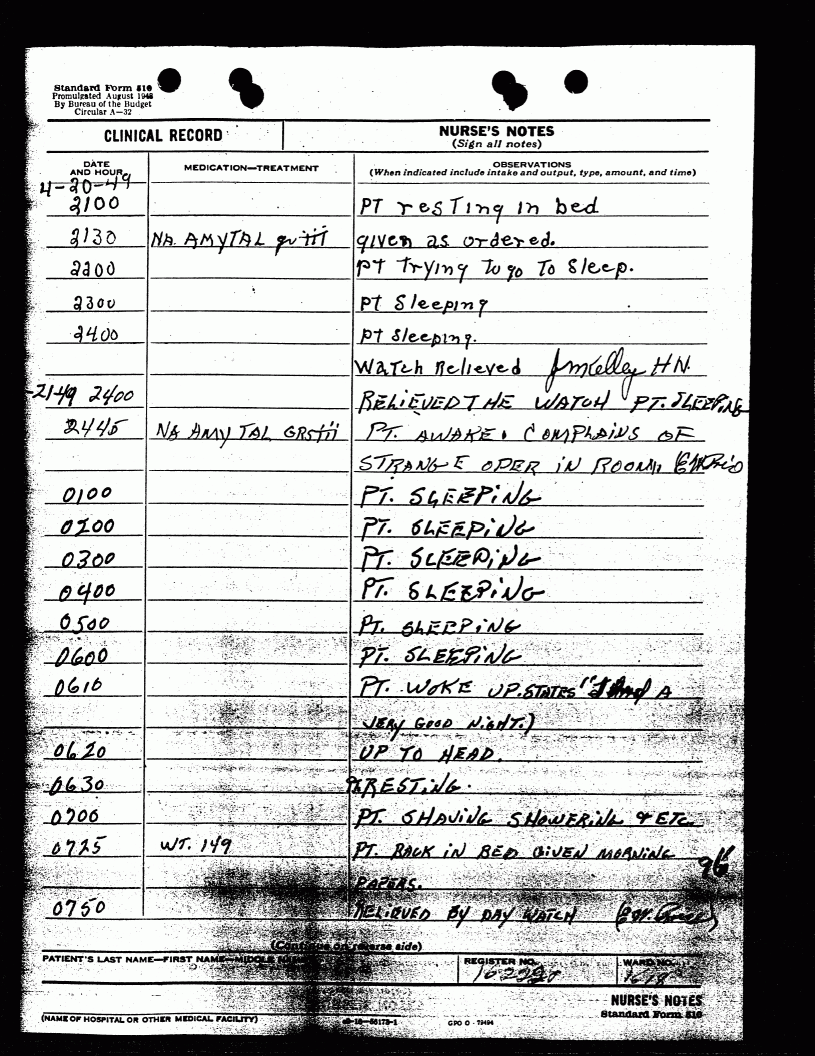 Standard Form 510
Promulgated August 1948
By Bureau of the Budget
Circular A—32
CLINICAL RECORD
NURSE'S NOTES
(Sign all notes)
DATE AND HOUR
MEDICATION—TREATMENT
OBSERVATIONS
(When indicated include intake and output, type, amount, and time)
4-20-49
2100 PT resting in bed
2130 NA. AMYTAL given as ordered.
2200 PT Trying To go To Sleep.
2300 PT Sleeping
2400 PT Sleeping.
Watch Relieved JM Kelley HN
-21-49 2400 RELIEVED THE WATCH PT. SLEEPING
2445 NA AMYTAL GRS iii PT. AWAKE. COMPLAINS OF
STRANGE ODER IN ROOM.
0100 PT. SLEEPING
0200 PT. SLEEPING
0300 PT. SLEEPING
0400 PT. SLEEPING
0500 PT. SLEEPING
0600 PT. SLEEPING
0610 PT. WOKE UP. STATES "I had A
VERY GOOD NIGHT.)
0620 UP TO HEAD.
0630 RESTING.
0700 PT. SHAVING SHOWERING & ETC.
0725 WT. 149 PT. BACK IN BED GIVEN MORNING
PAPERS.
96
0750 RELIEVED BY DAY WATCH
(Continue on reverse side)
PATIENT'S LAST NAME—FIRST NAME—MIDDLE NAME
REGISTER NO.
WARD NO.
NURSE'S NOTES
Standard Form 510
(NAME OF HOSPITAL OR OTHER MEDICAL FACILITY)
GPO